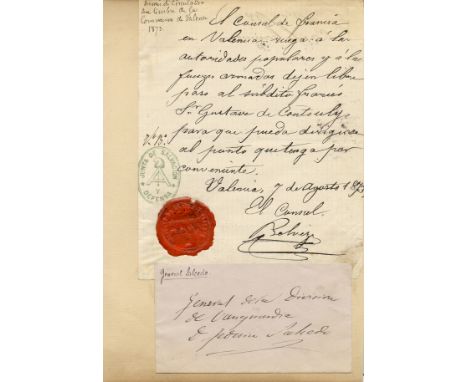 El Consul de Francia
en Valencia ruega á las
autoridades populares y á la
fuerza armada dejen libre
paso al súbdito francés
Sr Gustave de Contouly
para que pueda dirigirse
al punto que tenga por
conveniente.
Valencia, 7 de Agosto 1873
El Consul
Vº Bº
JUNTA DE SALVACION
Y
DEFENSA
General Salcedo
General de la Division
de Vanguardia
D. Salcedo